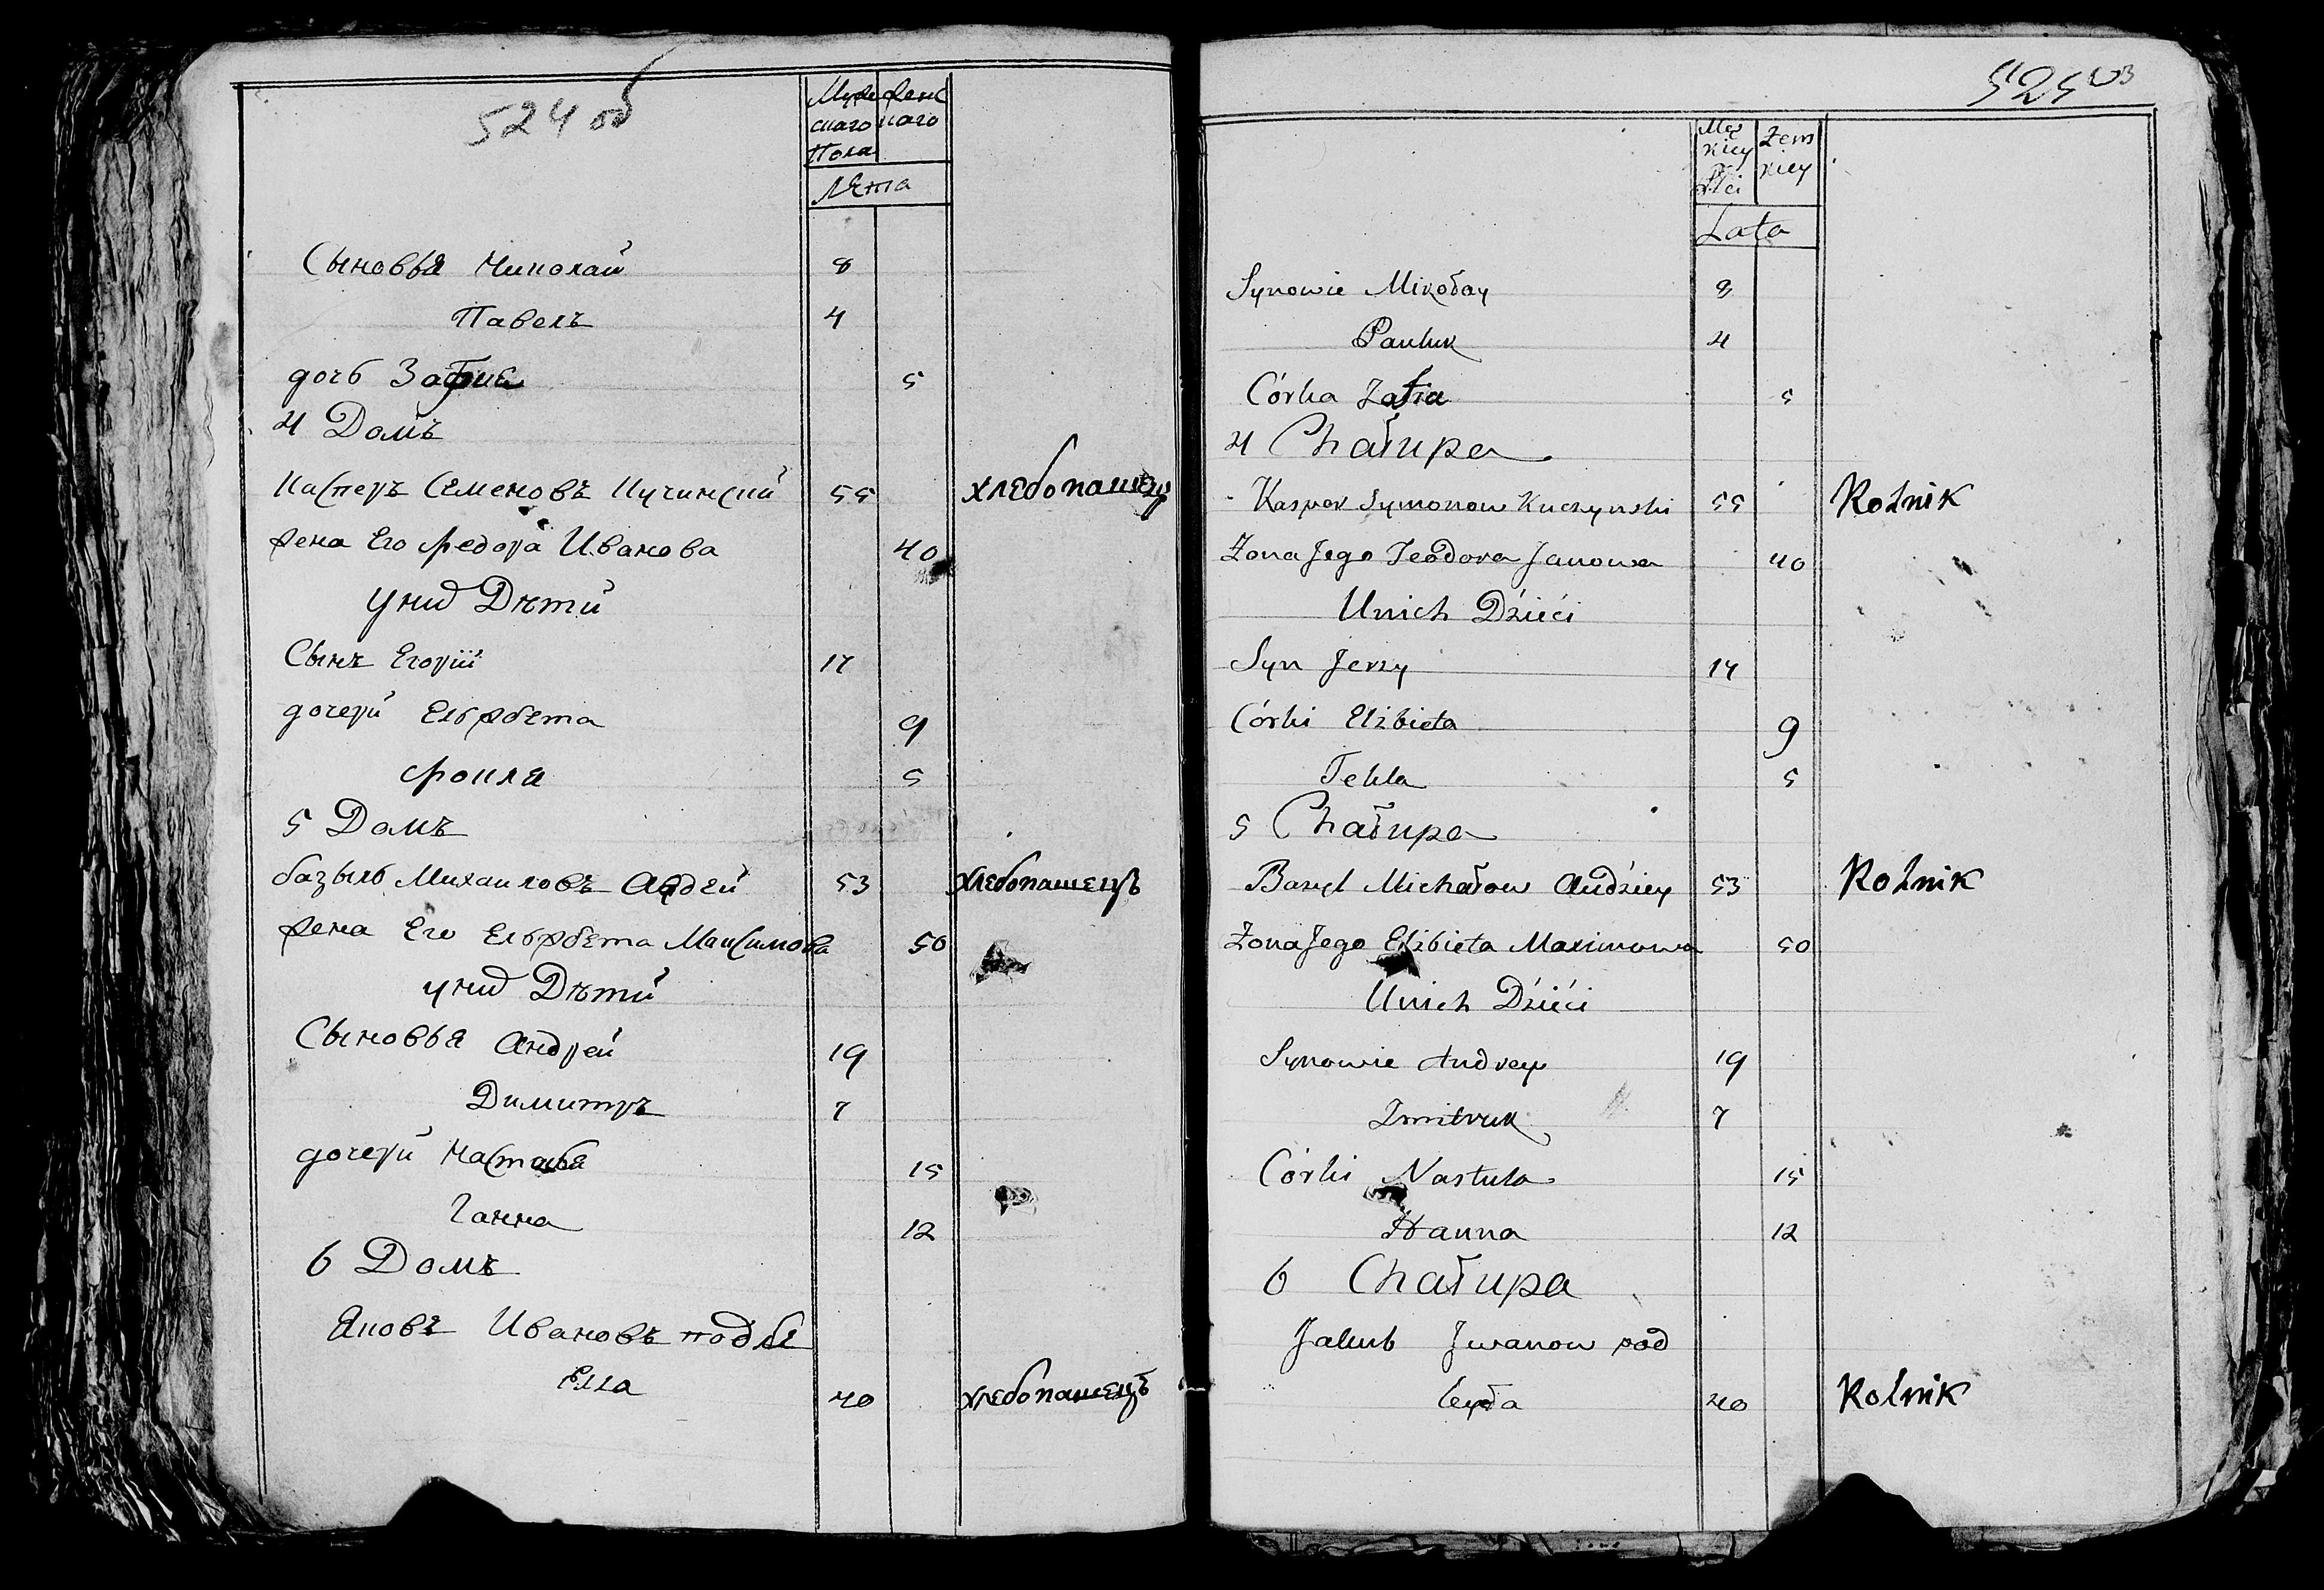 524 об
Мужескаго Пола
Женскаго
Лета
Сыновья Николай 8
Павелъ 4
дочь Зафия 5
4 Домъ
Касперъ Семеновъ Кучинский 55 хлебопашецъ
жена Его Федора Иванова 40
у них Дѣти
Сынъ Егорий 17
дочери Ельжбета 9
Фекля 5
5 Домъ
базыль Михаиловъ Авдей 53 хлебопашецъ
жена Его Ельжбета Максимова 50
у них Дѣти
Сыновья Андрей 19
Димитръ 7
дочери Настася 15
Ганна 12
6 Домъ
Яковъ Ивановъ подле
Егла 40 хлебопашецъ
525
Męzkiey Płci
Żenskiey
Lata
Synowie Mikołay 8
Pauluk 4
Córka Zofia 5
4 Chałupa
Kasper Symonow Kuczynski 55 Rolnik
Żona Jego Teodora Janowa 40
U nich Dzieći
Syn Jerzy 17
Córki Elżbieta 9
Tekla 5
5 Chałupa
Bazyl Michałow Audziey 53 Rolnik
Żona Jego Elżbieta Maximowa 50
U nich Dzieći
Synowie Andrey 19
Zmitruk 7
Córki Nastula 15
Hanna 12
6 Chałupa
Jakub Jwanow pod
leyda 40 Rolnik